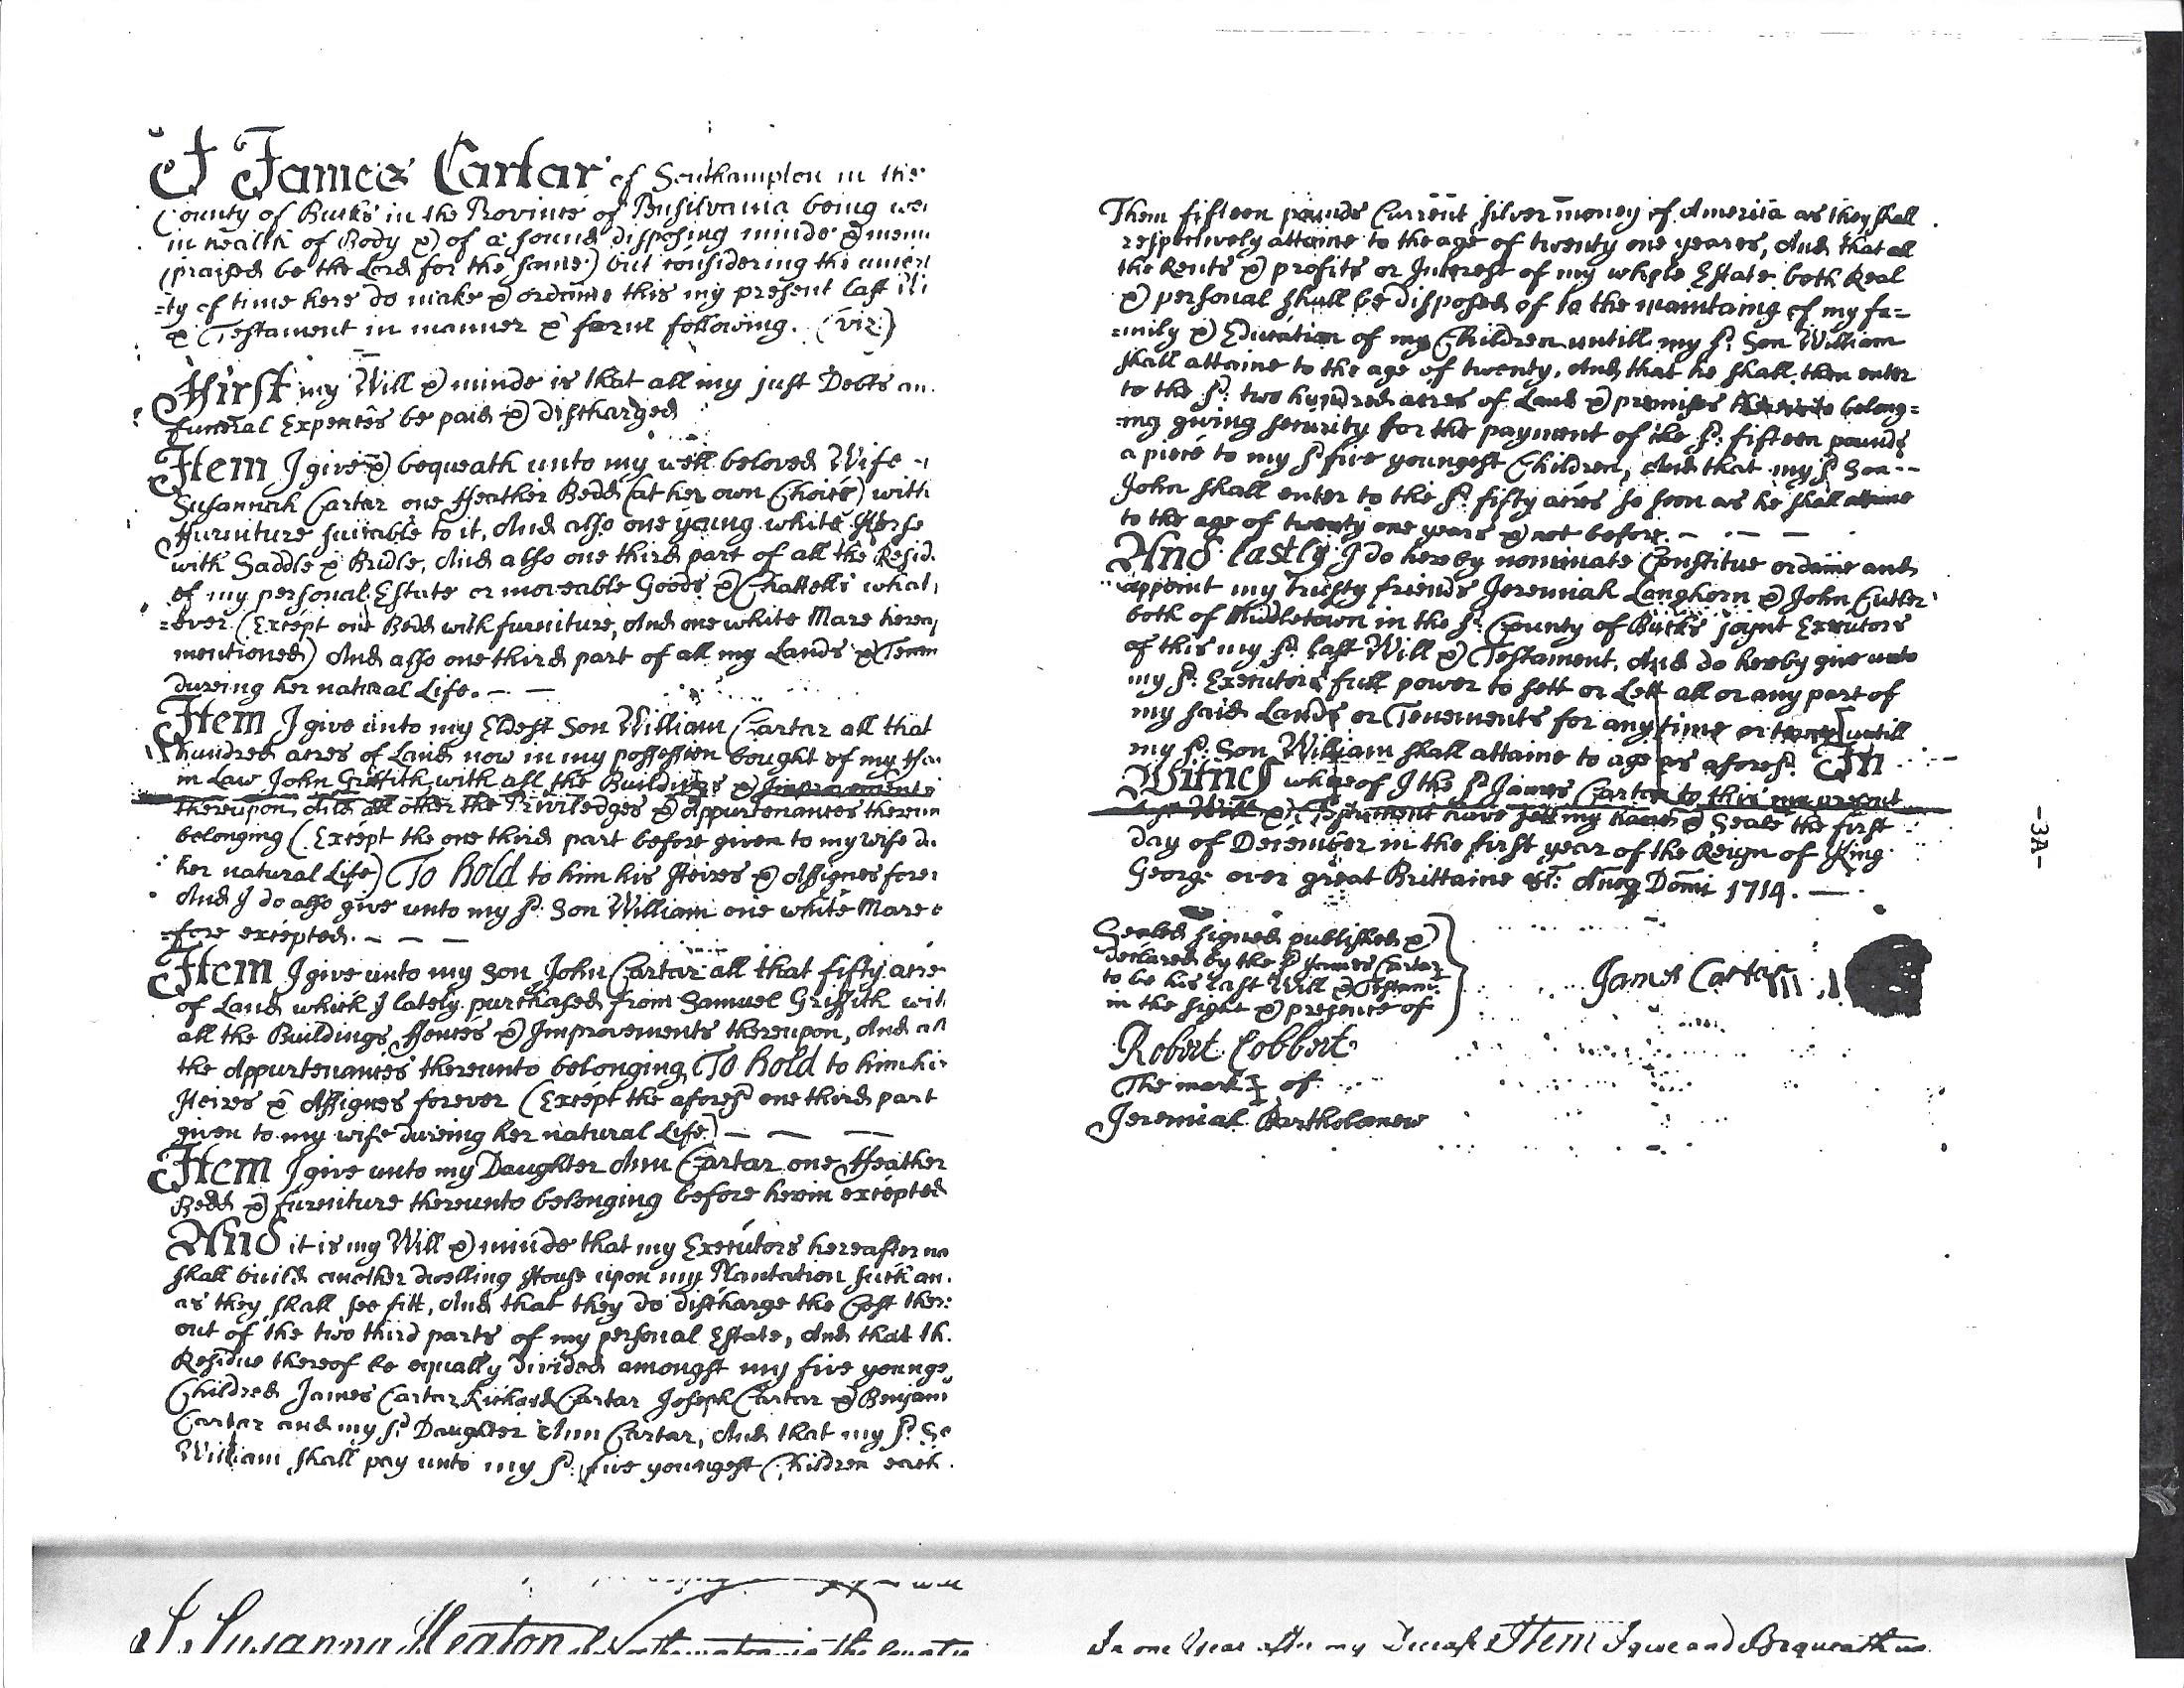 I James Cartar of Southampton in the
County of Bucks in the Province of Pensilvania being
in health of Body & of a sound disposing minde &
(praised be the Lord for the same) but considering the uncert
=ty of time here do make & ordaine this my present last
& Testament in manner & forme following. (viz:)
First my Will & minde is that all my just Debts an
funeral Expences be paid & discharged
Item I give & bequeath unto my well beloved Wife
Susannah Cartar one Feather Bedd (at her own Choice) with
Furniture suitable to it, And also one young white Horse
with Saddle & Bridle, And also one third part of all the Resid
of my personal Estate or moveable Goods & Chattells what
=ever (Except one Bedd with furniture, And one white Mare herea
mentioned) And also one third part of all my Lands & Tenem
dureing her natural Life. — —
Item I give unto my Eldest Son William Cartar all that
hundred acres of Land now in my possession bought of my
in Law John Griffith, with all the Buildings & Improvements
thereupon, And all other the Priviledges & Appurtenances thereun
belonging (Except the one third part before given to my wife du
her natural Life) To hold to him his Heires & Assignes fore
And I do also give unto my sd. Son William one white Mare
=fore excepted. — — —
Item I give unto my Son John Cartar all that fifty acre
of Land which I lately purchased from Samuel Griffith wit
all the Buildings Fences & Improvements thereupon, And all
the Appurtenances thereunto belonging, To hold to him his
Heires & Assignes forever (Except the aforesd one third part
given to my wife dureing her natural Life.) — — —
Item I give unto my Daughter Ann Cartar one Feather
Bedd & furniture thereunto belonging before herein excepted
And it is my Will & minde that my Executors hereafter na
shall build another dwelling House upon my Plantation such an
as they shall see fitt, And that they do discharge the Cost ther
out of the two third parts of my personal Estate, And that th
Residue thereof be equally divided amongst my five younge
Children James Cartar Richard Cartar Joseph Cartar & Benjam
Cartar and my sd. Daughter Ann Cartar, And that my sd. So
William shall pay unto my sd. five youngest Children each
Them fifteen pounds Current silver money of America as they shall
respectively attaine to the age of twenty one yeares, And that all
the Rents & profits or Interest of my whole Estate both Real
& personal shall be disposed of to the maintaing of my fa=
=mily & Education of my Children untill my sd. Son William
shall attaine to the age of twenty, And that he shall then enter
to the sd. two hundred acres of Land & premises thereto belong=
=ing giving security for the payment of the sd. fifteen pounds
a piece to my sd five youngest Children, And that my sd Son
John shall enter to the sd. fifty acres so soon as he shall attaine
to the age of twenty one years & not before. — — —
And lastly I do hereby nominate Constitue ordaine and
appoint my trusty friends Jeremiah Langhorn & John Cutler
both of Middletown in the sd. County of Bucks joynt Executors
of this my sd. last Will & Testament, And do hereby give unto
my sd. Executors full power to sett or Lett all or any part of
my said Lands or Tenements for any time or untill
my sd. Son William shall attaine to age as aforesd. In
Witness whereof I the sd James Cartar to this my present
last Will & Testament have sett my hand & Seale the first
day of December in the first year of the Reign of King
George over great Brittaine &c. Anoq Domi 1714. —
Sealed signed published &
declared by the sd James Cartar
to be his last Will & Testamt.
in the sight & presence of
James Cartar
Robert Cobbert
The mark I of
Jeremiah Bartholomew
-3A-
I Susanna Heaton of Northampton in the County
In one Year after my Decease Item I give and Bequeath un